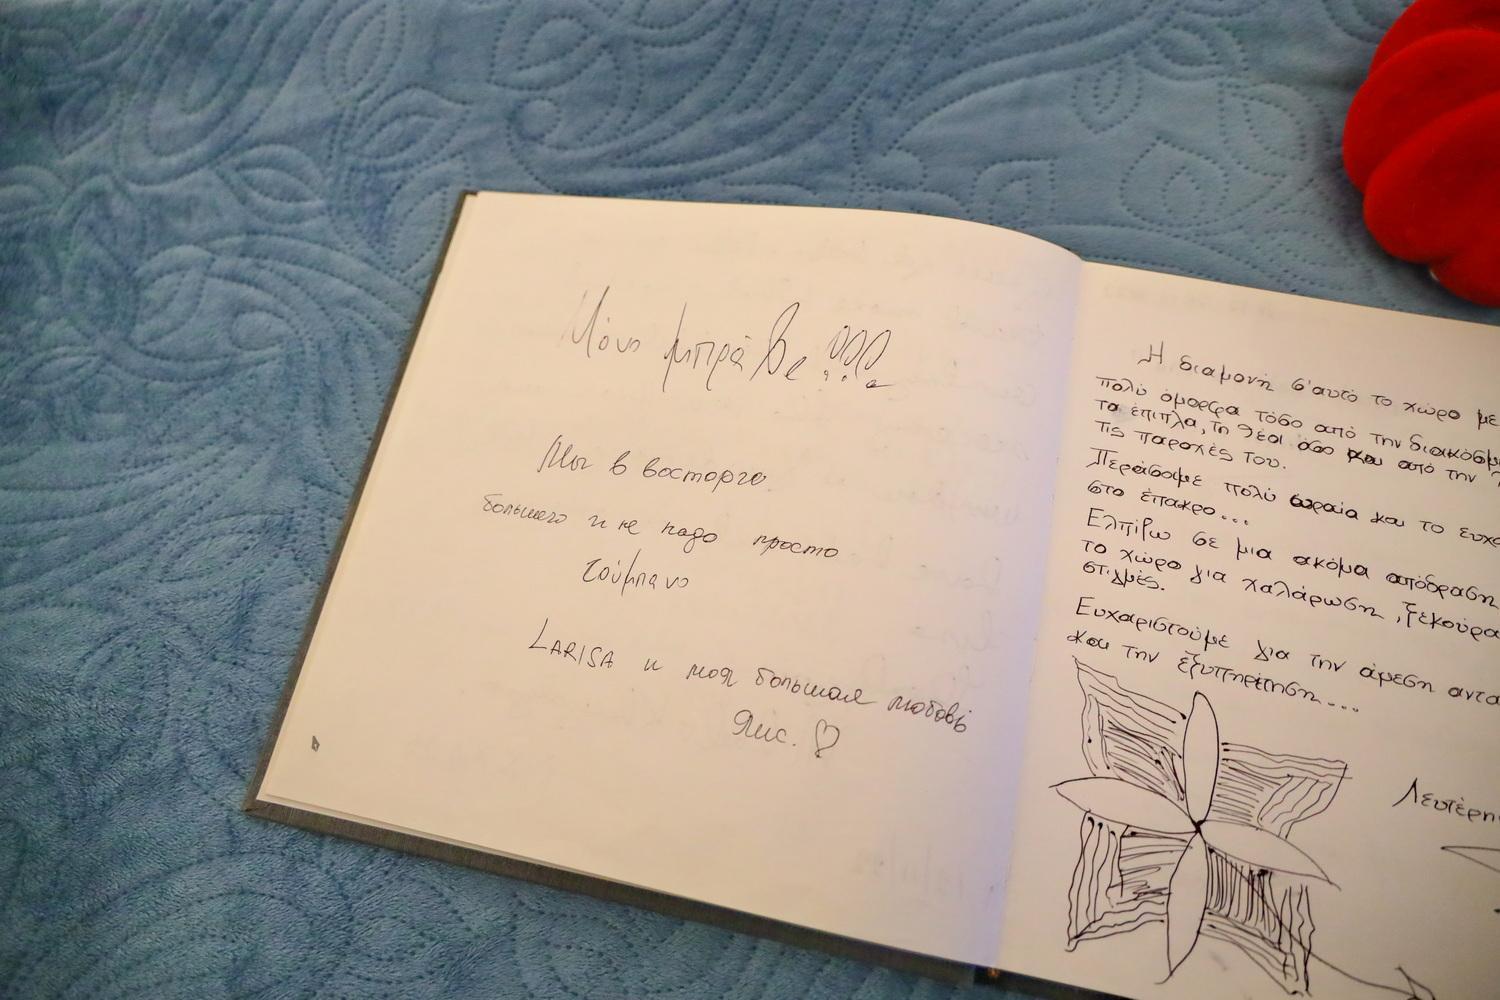 Μόνο μπράβο !!!
Мы в восторге
большего и не надо просто
τούμπανο
LARISA и моя большая любовь
Янис. ♡
Η διαμονή σ'αυτό το χώρο με
πολύ όμορφα τόσο από την διακόσμη
τα έπιπλα, τη θέα όσο και από την
τις παροχές του.
Περάσαμε πολύ ωραία και το ευχα
στο έπακρο...
Ελπίζω σε μια ακόμα απόδραση
το χώρο για χαλάρωση, ξεκούρα
στιγμές.
Ευχαριστούμε για την άμεση αντα
και την εξυπηρέτηση...
Λευτέρη